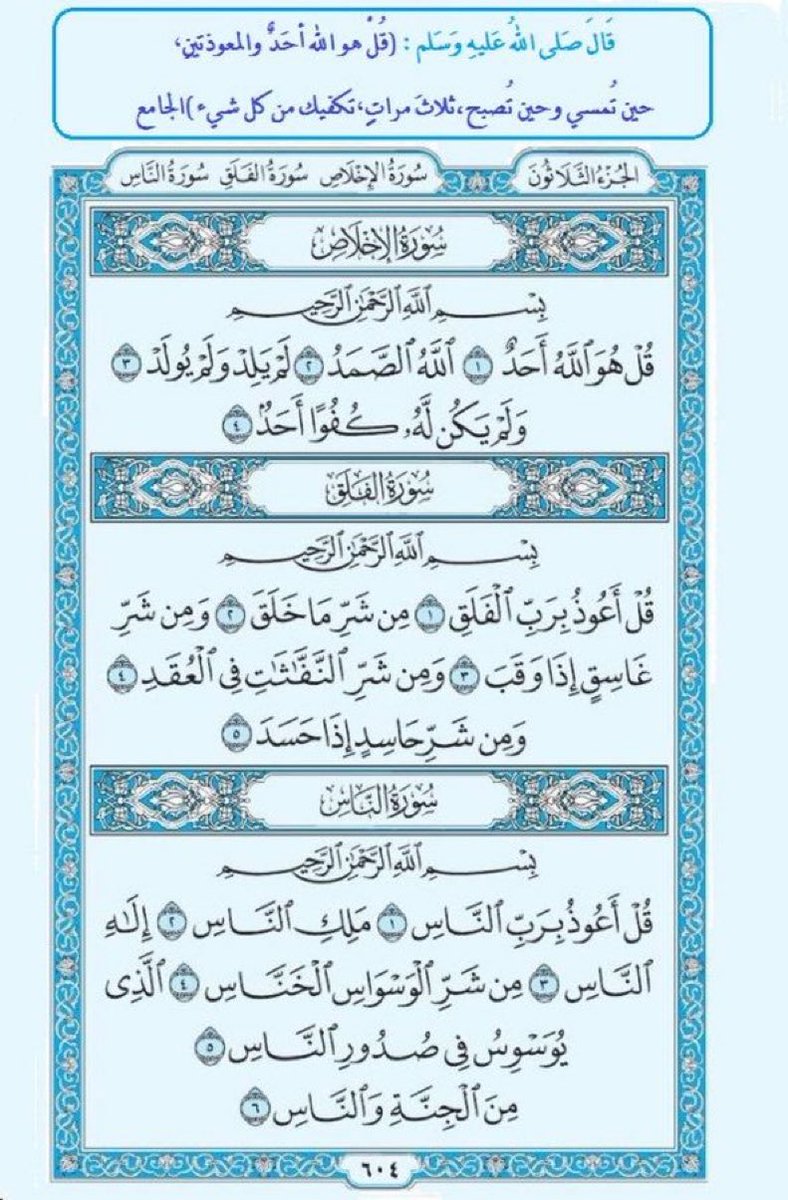 قَالَ صَلى اللهُ عَليهِ وَسَلم : (قُلْ هو الله أحَدٌ والمعوذتَينِ،
حين تُمسي وحين تُصبح، ثلاثَ مراتٍ، تكفيك من كل شيء)الجامع
الجُزءُ الثَّلَاثُونَ
سُورَةُ الإِخْلَاصِ سُورَةُ الفَلَقِ سُورَةُ النَّاسِ
سُورَةُ الإِخْلَاصِ
بِسْمِ ٱللَّهِ ٱلرَّحْمَٰنِ ٱلرَّحِيمِ
قُلْ هُوَ ٱللَّهُ أَحَدٌ ١ ٱللَّهُ ٱلصَّمَدُ ٢ لَمْ يَلِدْ وَلَمْ يُولَدْ ٣
وَلَمْ يَكُن لَّهُۥ كُفُوًا أَحَدٌۢ ٤
سُورَةُ الفَلَقِ
بِسْمِ ٱللَّهِ ٱلرَّحْمَٰنِ ٱلرَّحِيمِ
قُلْ أَعُوذُ بِرَبِّ ٱلْفَلَقِ ١ مِن شَرِّ مَا خَلَقَ ٢ وَمِن شَرِّ
غَاسِقٍ إِذَا وَقَبَ ٣ وَمِن شَرِّ ٱلنَّفَّٰثَٰتِ فِى ٱلْعُقَدِ ٤
وَمِن شَرِّ حَاسِدٍ إِذَا حَسَدَ ٥
سُورَةُ النَّاسِ
بِسْمِ ٱللَّهِ ٱلرَّحْمَٰنِ ٱلرَّحِيمِ
قُلْ أَعُوذُ بِرَبِّ ٱلنَّاسِ ١ مَلِكِ ٱلنَّاسِ ٢ إِلَٰهِ
ٱلنَّاسِ ٣ مِن شَرِّ ٱلْوَسْوَاسِ ٱلْخَنَّاسِ ٤ ٱلَّذِى
يُوَسْوِسُ فِى صُدُورِ ٱلنَّاسِ ٥
مِنَ ٱلْجِنَّةِ وَٱلنَّاسِ ٦
٦٠٤